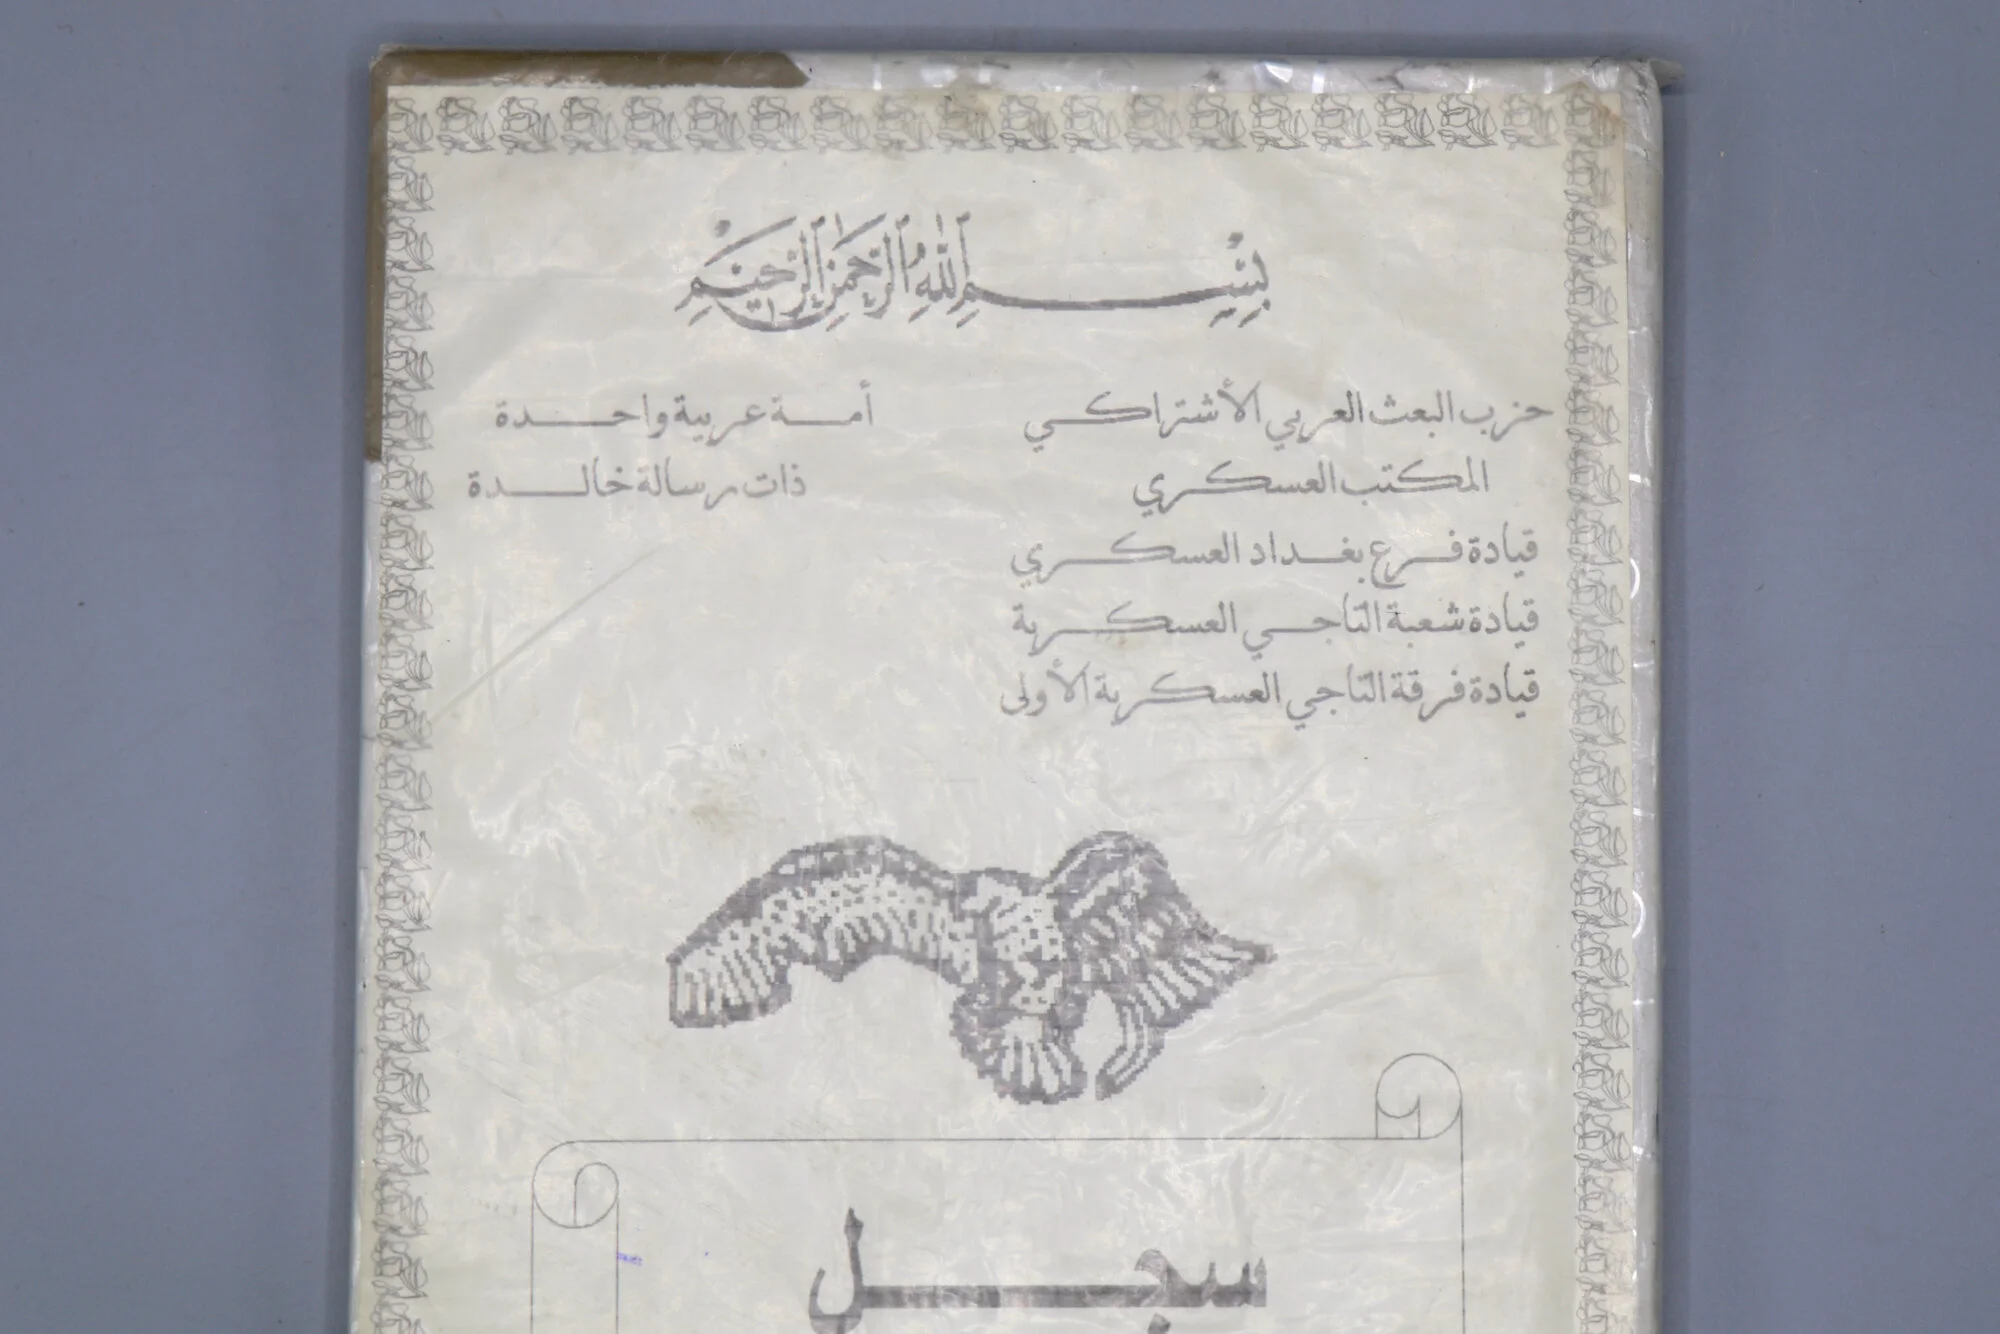 بِسْمِ ٱللَّهِ ٱلرَّحْمَٰنِ ٱلرَّحِيمِ
حزب البعث العربي الأشتراكي
أمة عربية واحدة
المكتب العسكري
ذات رسالة خالدة
قيادة فرع بغداد العسكري
قيادة شعبة التاجي العسكرية
قيادة فرقة التاجي العسكرية الأولى
سجل